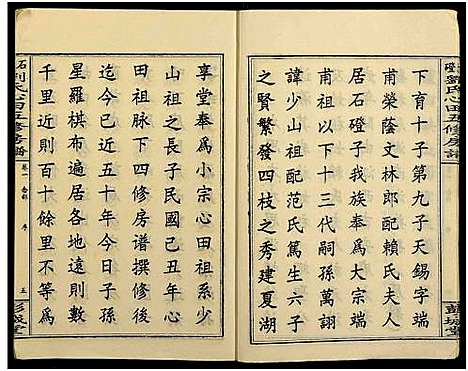 石磴劉氏心田五修房譜
彭城堂
下育十子第九子天錫字端
甫榮蔭文林郎配賴氏夫人
居石磴子我族奉爲大宗端
甫公脉下十三代嗣孫萬詡
諱少山祖配范氏篤生六子
之賢繁發四枝之秀建夏湖
享堂奉爲小宗心田祖系少
山祖三子民國己丑年心
田祖脉下四修房譜撰修後
迄今已近五十年今日子孫
星羅棋布遍居各地遠則數
千里近則百十餘里不等爲
石 劉氏心田五修房譜
卷一 序 五
彭城堂